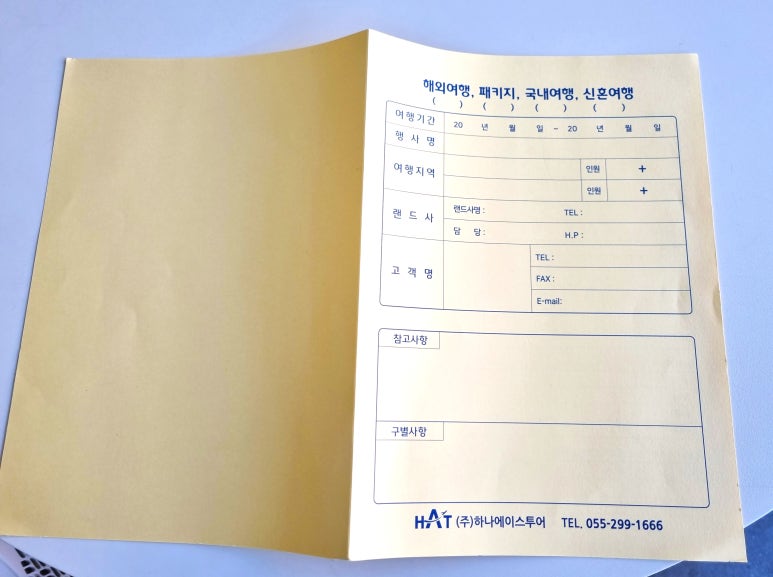 해외여행, 패키지, 국내여행, 신혼여행
( ) ( ) ( ) ( )
여행기간 20 년 월 일 - 20 년 월 일
행 사 명
여행지역 인원 +
인원 +
랜 드 사 랜드사명 : TEL :
담 당 : H.P :
고 객 명 TEL :
FAX :
E-mail:
참고사항
구별사항
HAT (주)하나에이스투어 TEL. 055-299-1666